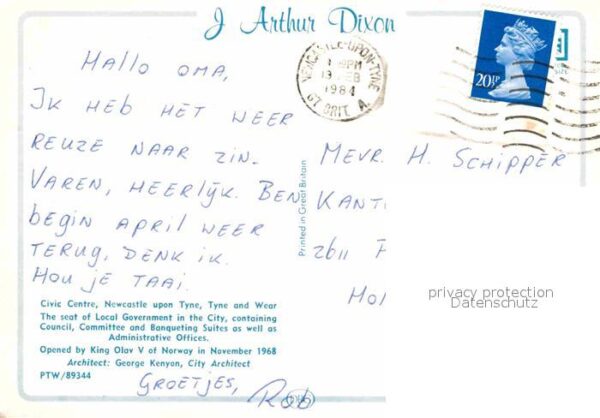 J Arthur Dixon
Hallo Oma,
Ik heb het weer
reuze naar zin.
Varen, heerlijk. Ben
begin april weer
terug, denk ik.
Hou je taai.
Civic Centre, Newcastle upon Tyne, Tyne and Wear
The seat of Local Government in the City, containing
Council, Committee and Banqueting Suites as well as
Administrative Offices.
Opened by King Olav V of Norway in November 1968
Architect: George Kenyon, City Architect
PTW/89344
Groetjes,
Rob
Printed in Great Britain
NEWCASTLE-UPON-TYNE
13 FEB
1984
GT. BRIT. A.
20½P
SIZE
Mevr. H. Schipper
Kant
2611
Hol
privacy protection
Datenschutz